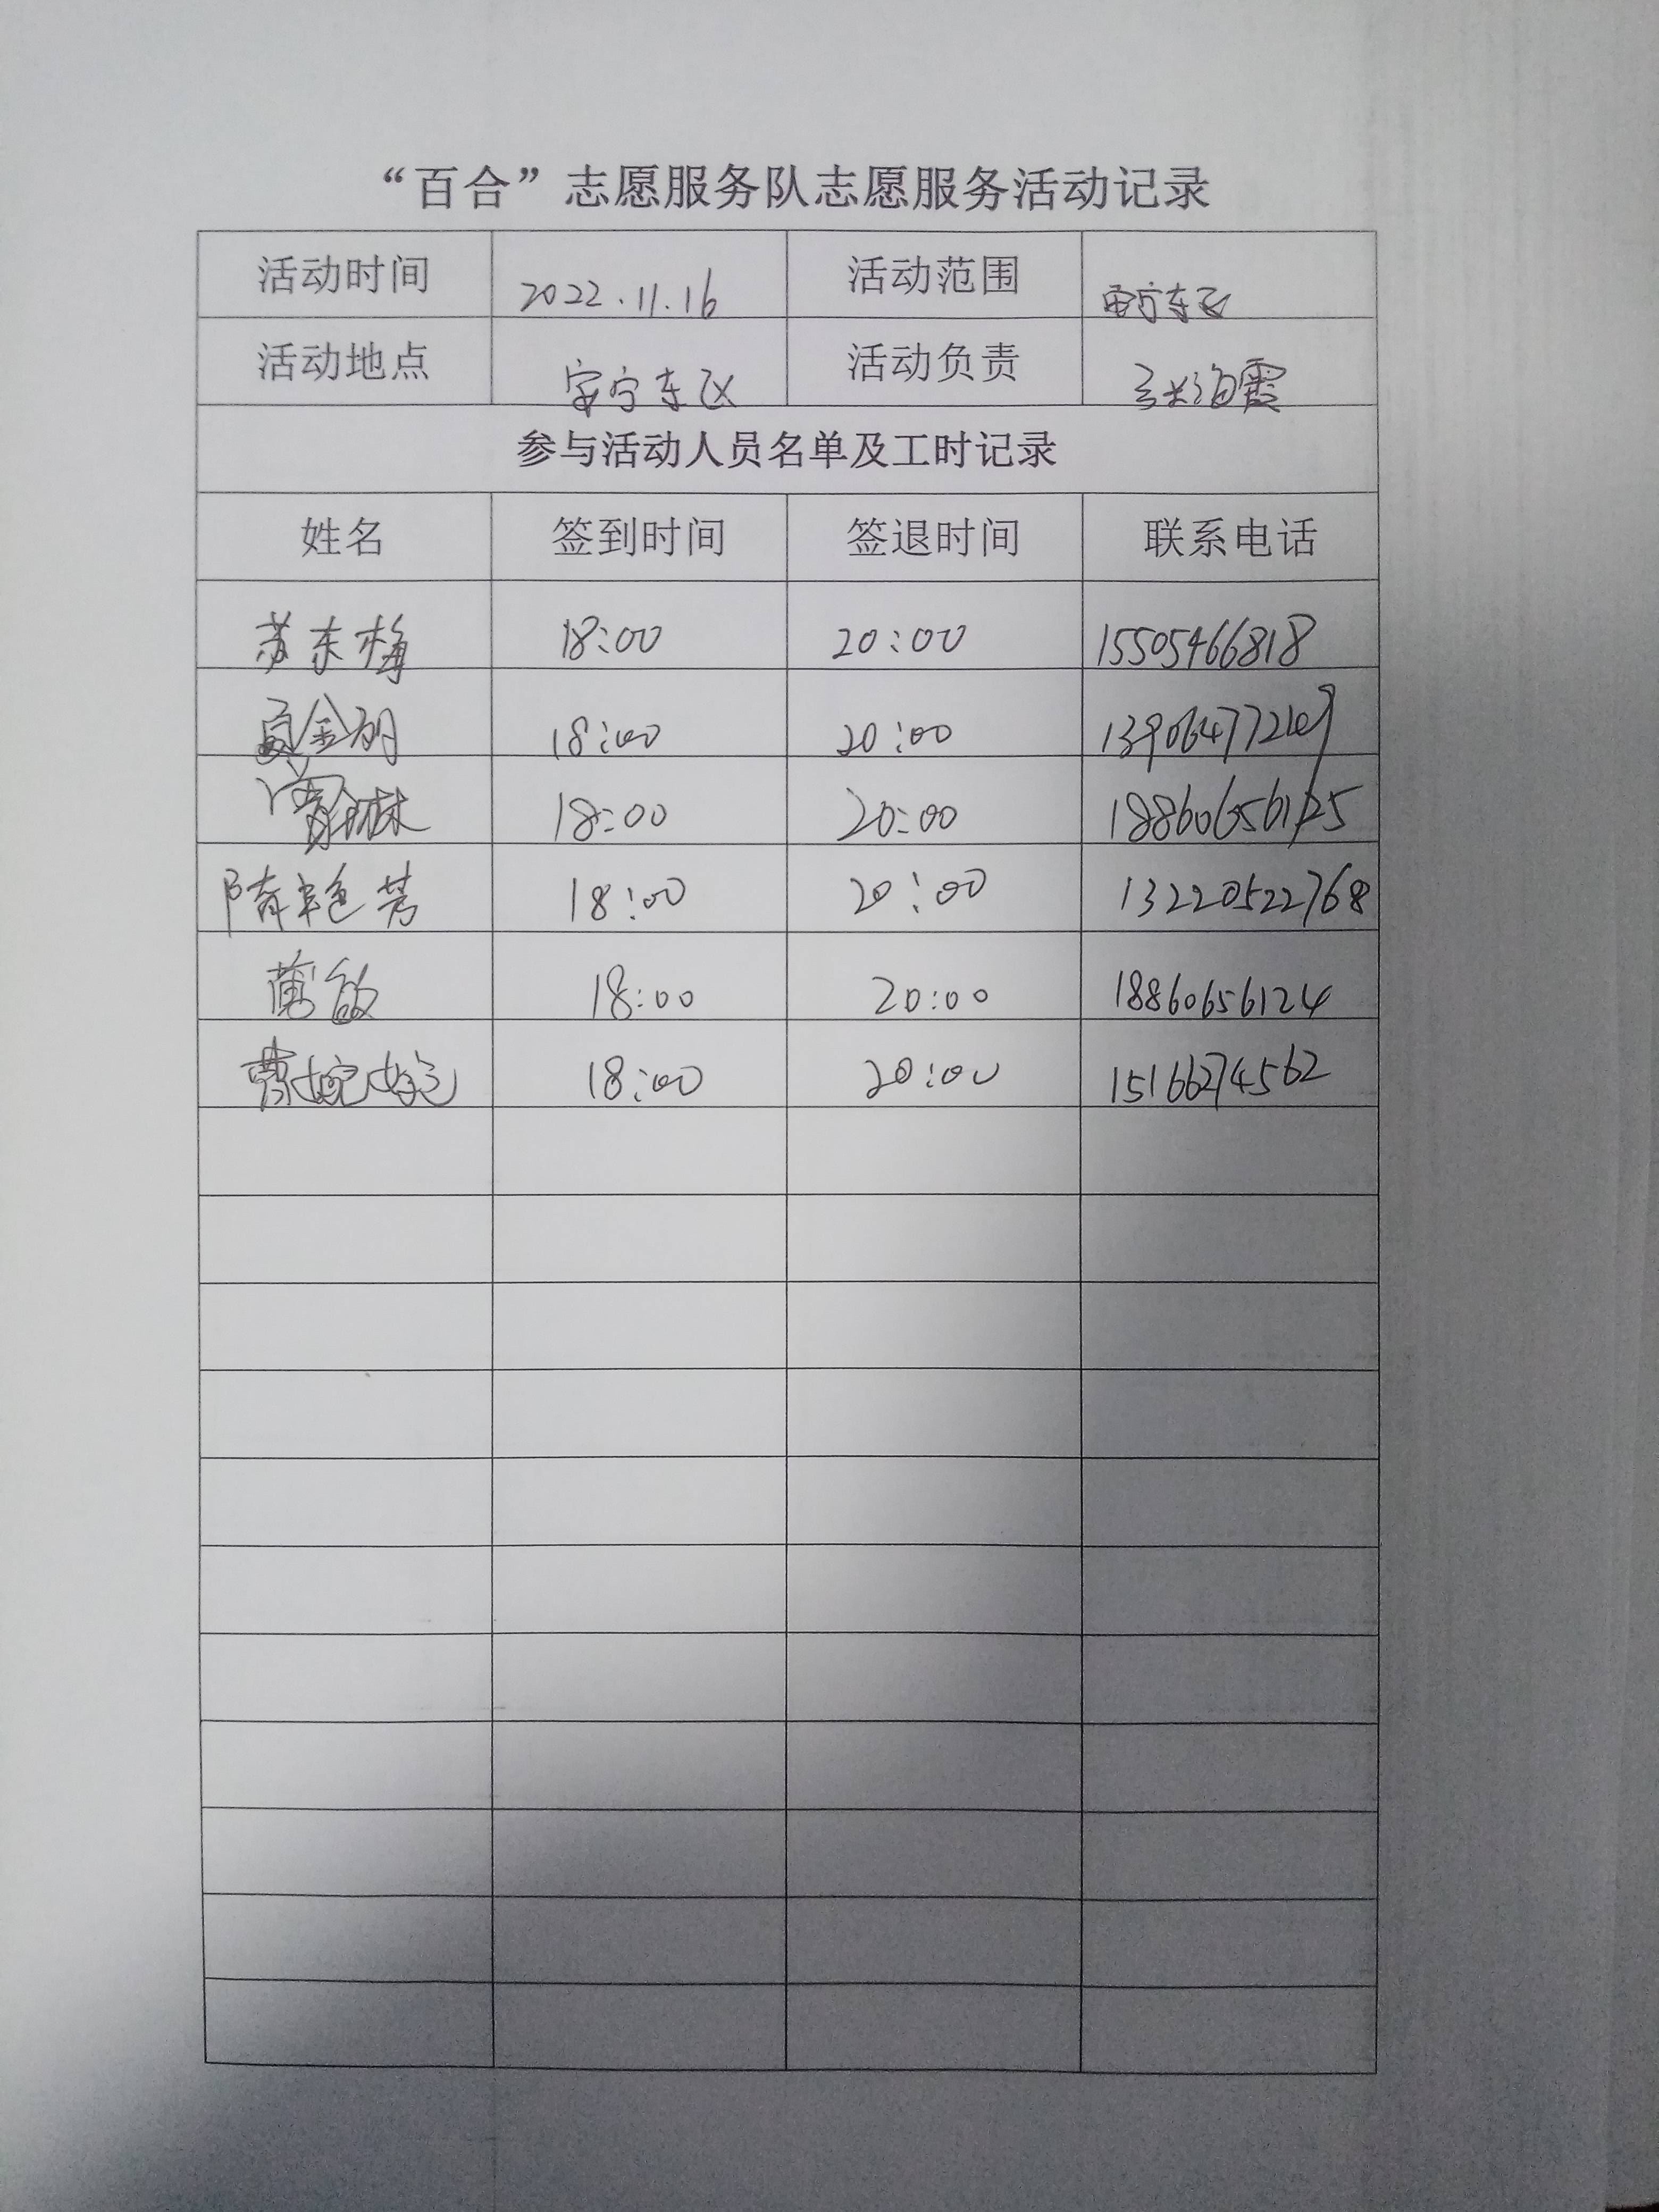 “百合”志愿服务队志愿服务活动记录
活动时间 2022.11.16 活动范围 安宁东区
活动地点 安宁东区 活动负责 张海霞
参与活动人员名单及工时记录
姓名 签到时间 签退时间 联系电话
苏东梅 18:00 20:00 15505466818
18:00 20:00
18:00 20:00 18860656125
隋艳芳 18:00 20:00 13220522768
蒲敏 18:00 20:00 18860656124
18:00 20:00 15166274562